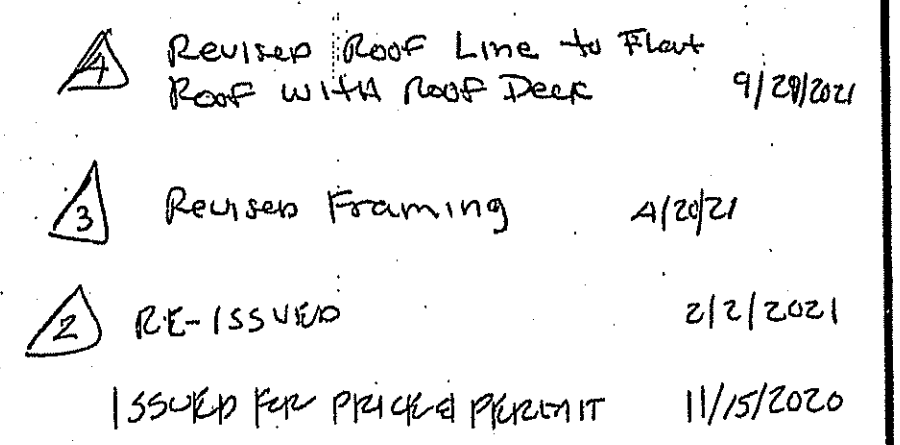 4 Revised Roof Line to Flat
Roof with Roof Deck 9/29/2021
3 Revised Framing 4/20/21
2 RE-ISSUED 2/2/2021
ISSUED FOR PRICE & PERMIT 11/15/2020